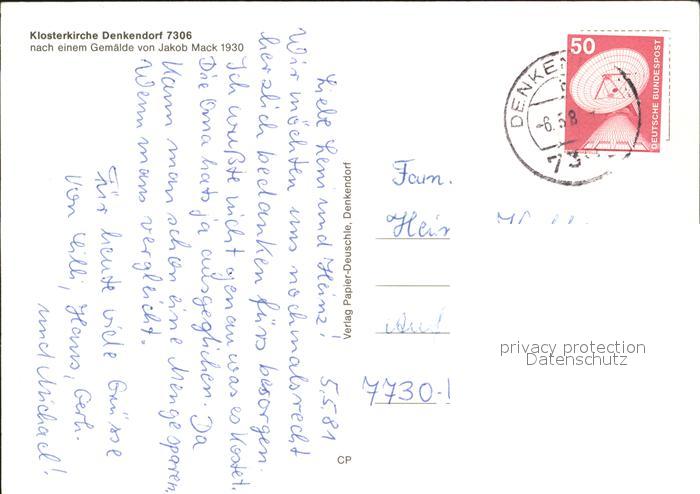 Klosterkirche Denkendorf 7306
nach einem Gemälde von Jakob Mack 1930
5.5.81
Liebe Leni und Heinz!
Wir möchten uns nochmals recht
herzlich bedanken fürs besorgen.
Ich wußte nicht genau was es kostet.
Die Oma hats ja ausgeglichen. Da
kann man schon eine Menge sparen,
wenn mans vergleicht.
Für heute viele Grüsse
von Willi, Hans, Gerh.
und Michael!
Verlag Papier-Deuschle, Denkendorf
CP
50
DEUTSCHE BUNDESPOST
DENKEN
-6.5.8
73
Fam.
Hein
7730-
privacy protection
Datenschutz